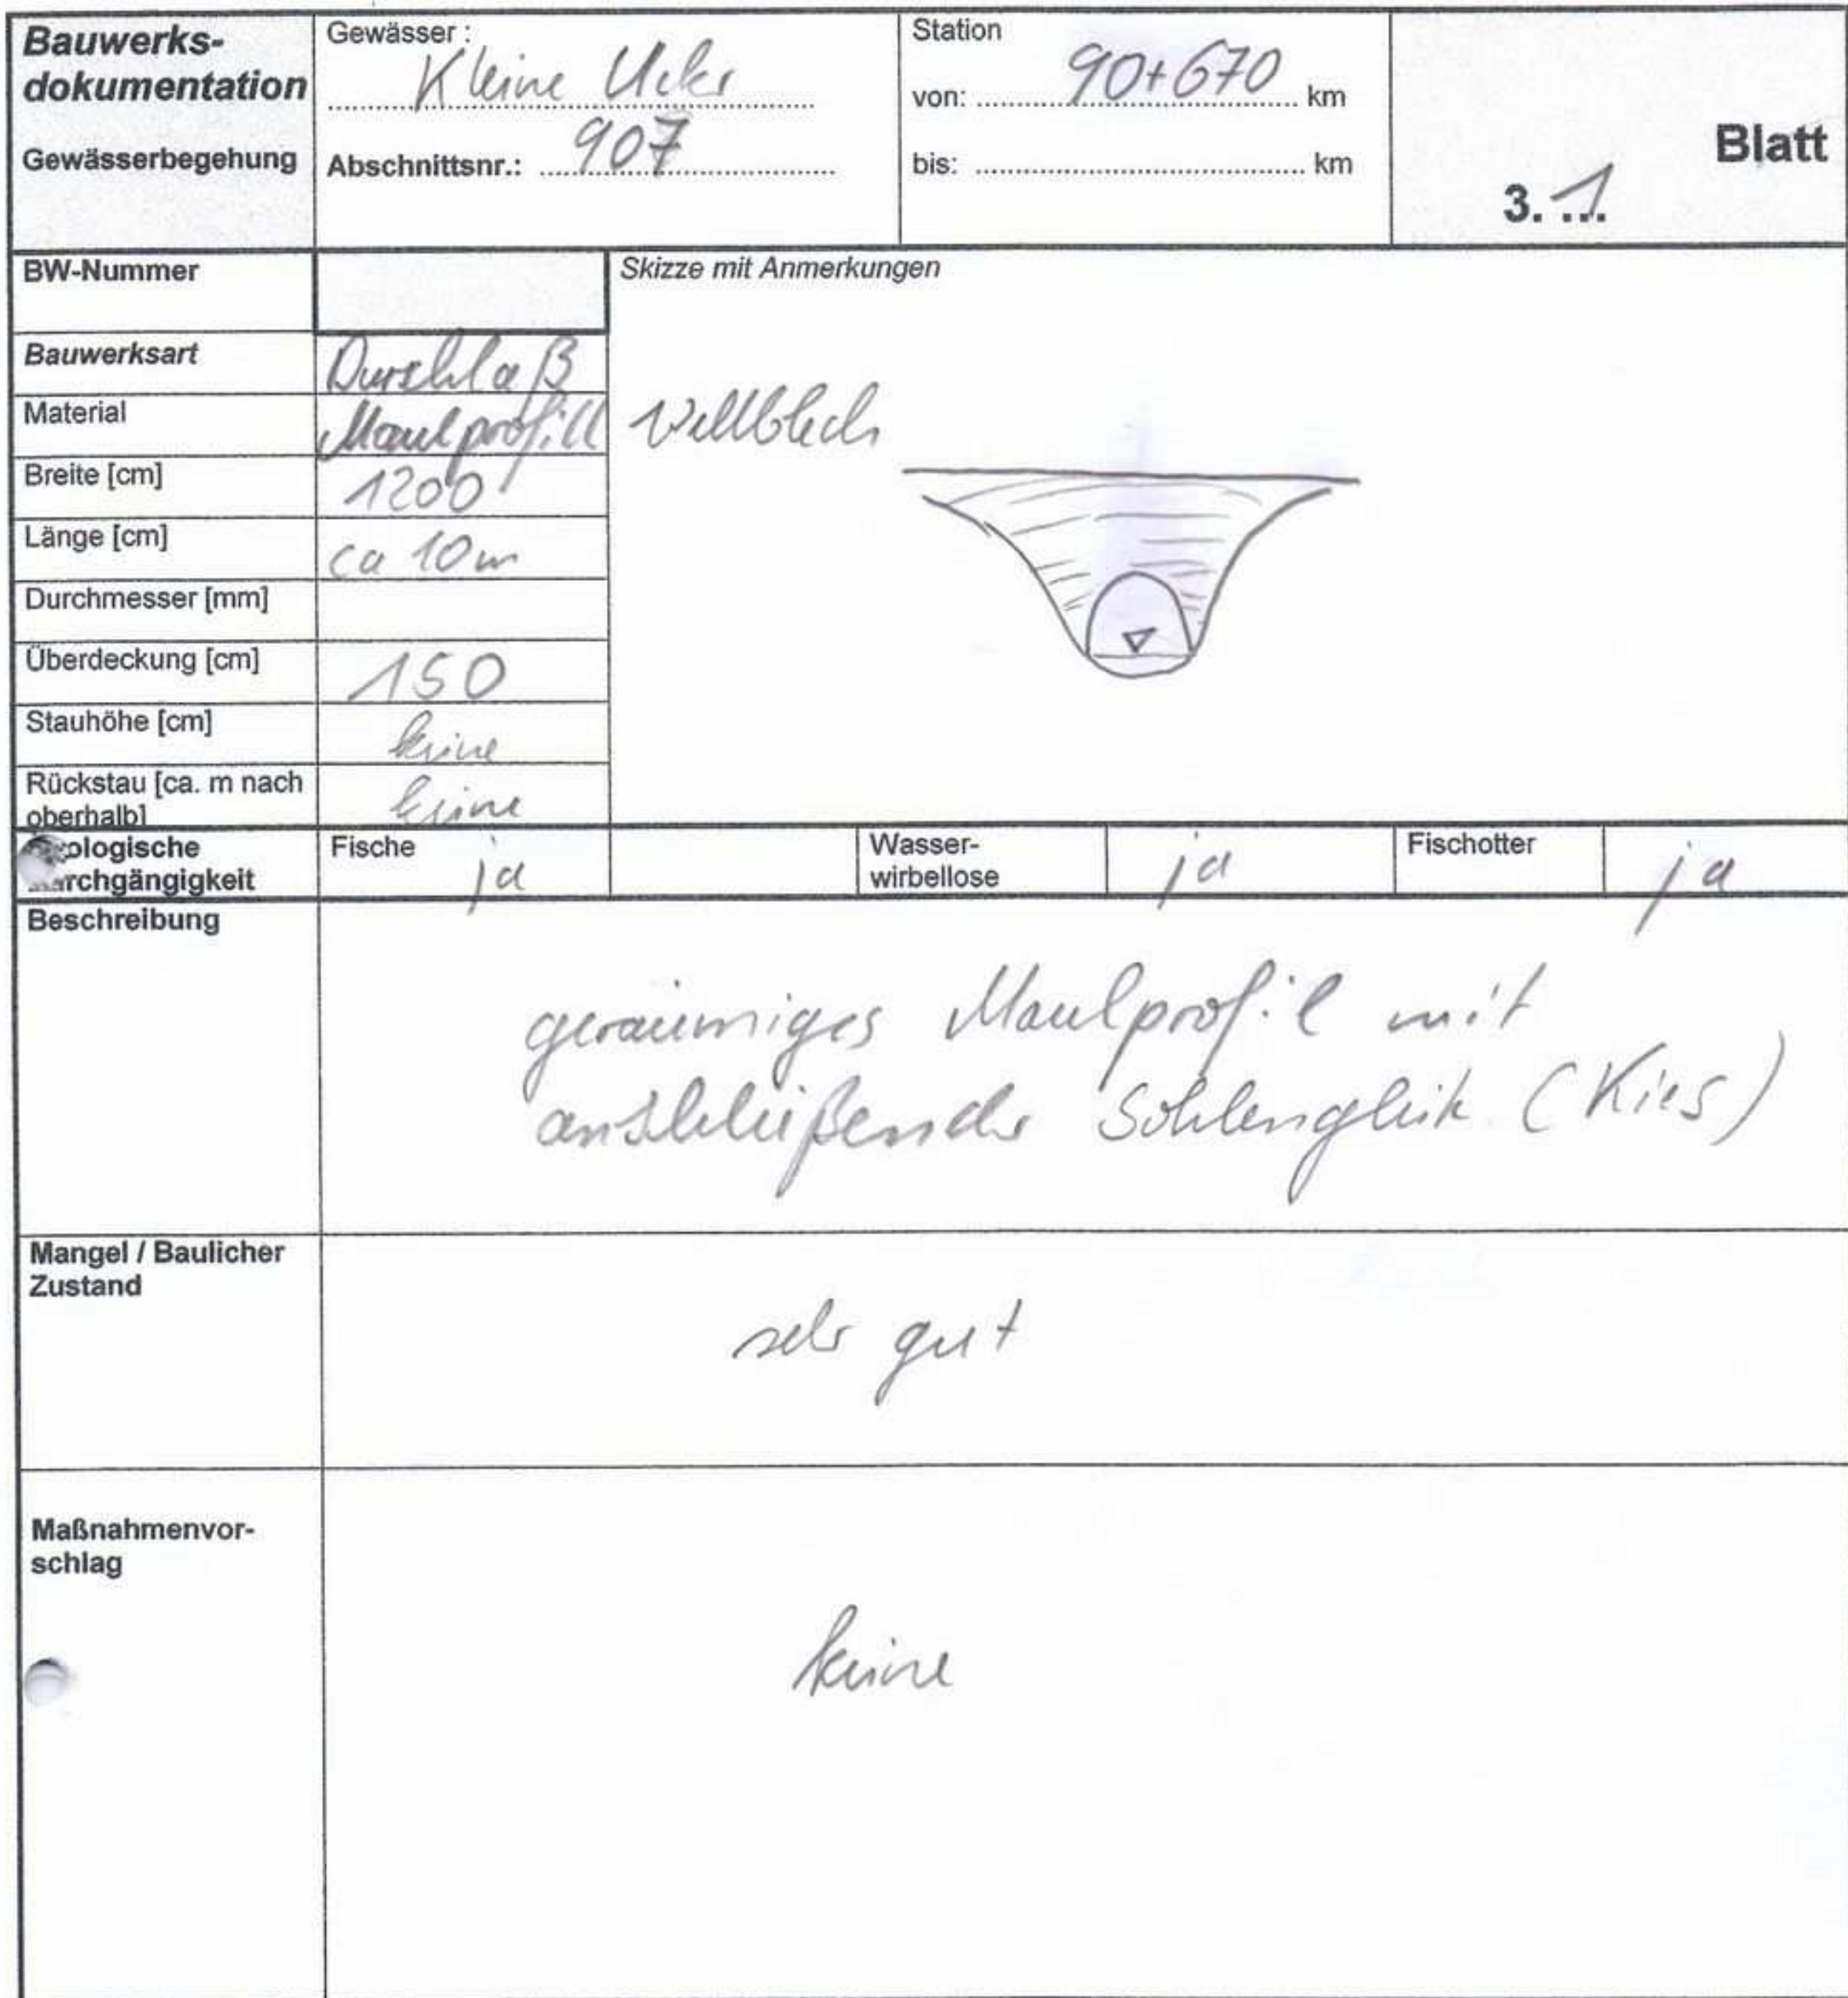 Bauwerks-
dokumentation
Gewässerbegehung
Gewässer :
Kleine Ucker
Abschnittsnr.: 907
Station
von: 90+670 km
bis: km
Blatt
3. 1
BW-Nummer
Skizze mit Anmerkungen
Bauwerksart Durchlaß
Material Maulprofill Wellblech
Breite [cm] 1200
Länge [cm] ca 10m
Durchmesser [mm]
Überdeckung [cm] 150
Stauhöhe [cm] keine
Rückstau [ca. m nach
oberhalb] keine
durchgängigkeit
Fische ja
Wasser-
wirbellose ja
Fischotter ja
Beschreibung
geräumiges Maulprofil mit
anschließender Sohlengleite (Kies)
Mangel / Baulicher
Zustand
sehr gut
Maßnahmenvor-
schlag
keine